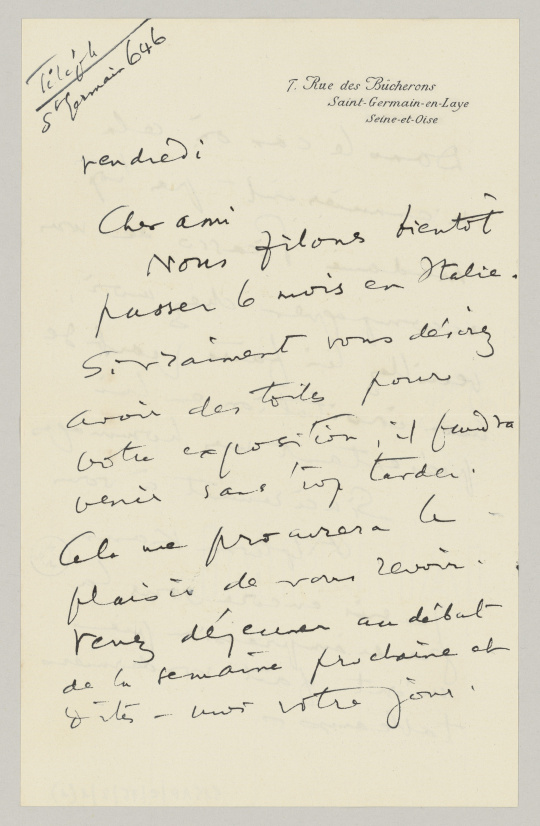 Téléph
St Germain 646
7. Rue des Bûcherons
Saint-Germain-en-Laye
Seine-et-Oise
vendredi
Cher ami
Nous filons bientôt
passer 6 mois en Italie.
Si vraiment vous désirez
avoir des toiles pour
votre exposition, il faudra
venir sans trop tarder.
Cela me procurera le
plaisir de vous revoir.
Venez déjeuner au début
de la semaine prochaine et
dites-moi votre jour.